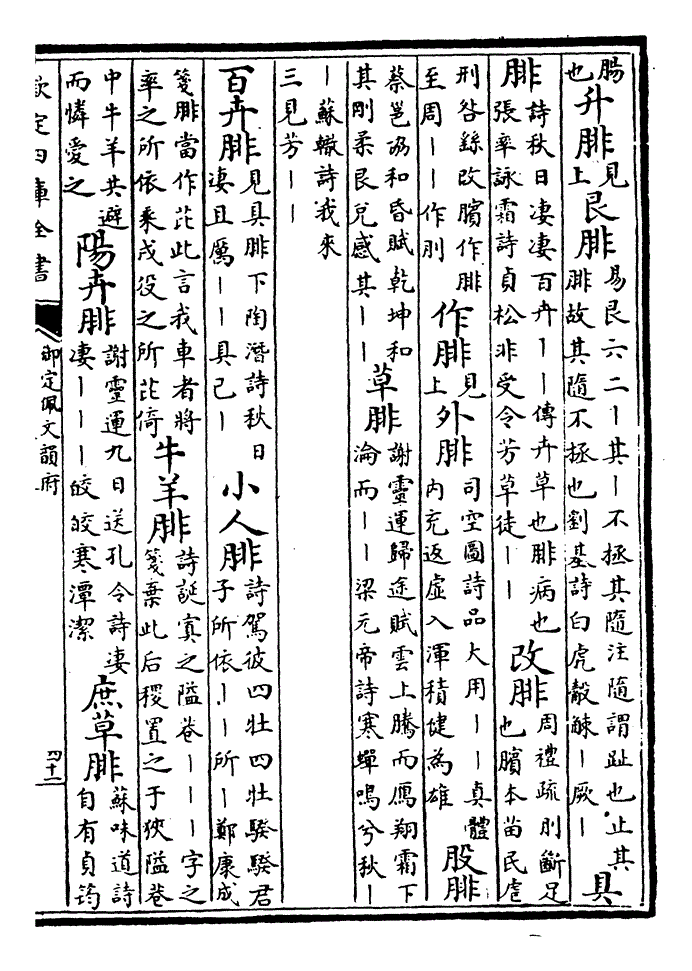 腸也升腓見上艮腓易艮六二丨其丨不拯其隨注隨謂趾也止其腓故其隨不拯也劉基詩白虎觳觫丨厥丨具
腓詩秋日凄凄百卉丨丨傳卉草也腓病也張率詠霜詩貞松非受令芳草徒丨丨改腓周禮疏刖斷足也臏本苗民虐
刑咎繇改臏作腓至周丨丨作刖作腓見上外腓司空圖詩品大用丨丨真體内充返虛入渾積健為雄股腓
蔡邕協和昏賦乾坤和其剛柔艮兌感其丨丨草腓謝靈運歸途賦雲上騰而鴈翔霜下淪而丨丨梁元帝詩寒蟬鳴兮秋丨
丨蘇轍詩我來三見芳丨丨
百卉腓見具腓下陶潛詩秋日凄且厲丨丨具已丨小人腓詩駕彼四牡四牡騤騤君子所依丨丨所丨鄭康成
箋腓當作芘此言我車者將率之所依乘戍役之所芘倚牛羊腓詩誕寘之隘巷丨丨丨字之箋棄此后稷置之于狹隘巷
中牛羊共避而憐愛之陽卉腓謝靈運九日送孔令詩凄凄丨丨丨皎皎寒潭潔庶草腓蘇味道詩自有貞筠
欽定四庫全書
御定佩文韻府
四十二